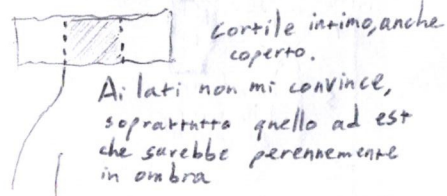 cortile intimo, anche
coperto.
Ai lati non mi convince,
soprattutto quello ad est
che sarebbe perennemente
in ombra